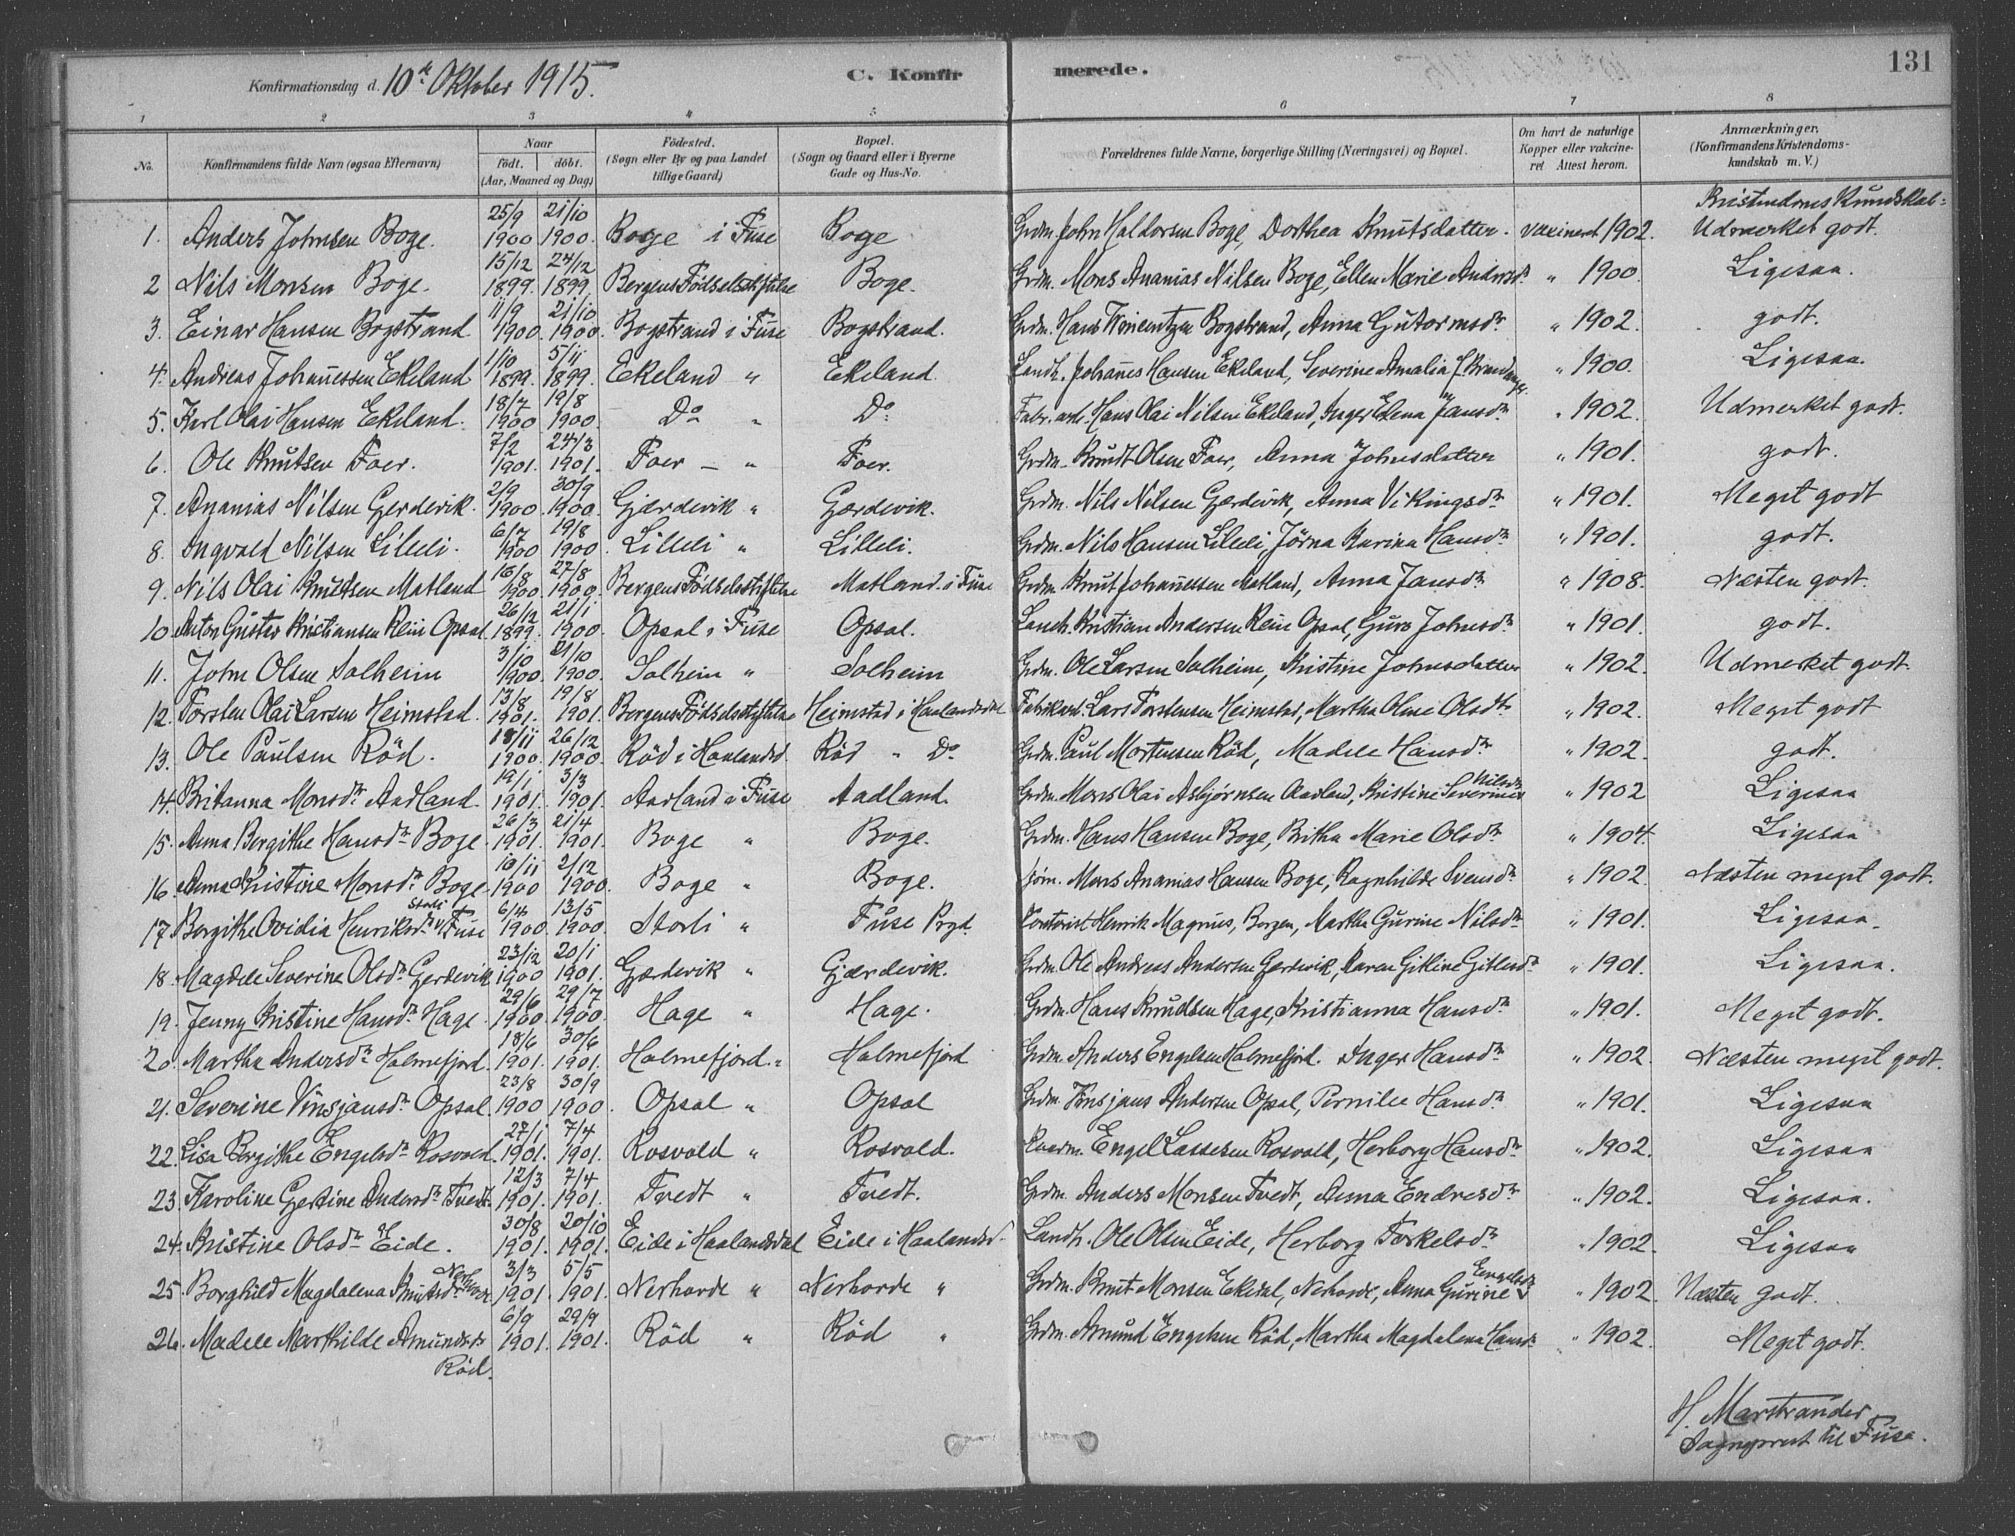 131
Konfirmationsdag d. 10de Oktober 1915.
C. Konfirmerede.
1 2 3 4 5 6 7 8
No. Konfirmandens fulde Navn (ogsaa Efternavn) Naar født, døbt. (Aar, Maaned og Dag) Fødested. (Sogn eller By og paa Landet tillige Gaard) Bopæl. (Sogn og Gaard eller i Byerne Gade og Hus-No. Forældrenes fulde Navne, borgerlige Stilling (Næringsvei) og Bopæl. Om havt de naturlige Kopper eller vakcineret Attest herom. Anmærkninger. (Konfirmandens Kristendomskundskab m. V.)
Kristendoms Kundskab:
1. Anders Johnsen Boge. 25/9 1900 21/10 1900. Boge i Fuse Boge Grdm. John Haldorsen Boge, Dorthea Knutsdatter. vaccineret 1902. Udmerket godt.
2 Nils Monsen Boge. 15/12 1899. 24/12 1899. Bergens Fødselsstiftelse Boge. Grdm. Mons Ananias Nilsen Boge, Ellen Marie Andersdr " 1900. Ligesaa.
3. Einar Hansen Bogstrand 11/9 1900. 21/10 1900. Bogstrand i Fuse Bogstrand. Grdm. Hans Bogstrand, Anna Gutormsdr " 1902. godt.
4. Andreas Johannessen Ekeland 1/10 1899. 5/11 1899. Ekeland " Ekeland. Landh. Johannes Hansen Ekeland, Severine Amalia J. " 1900. Ligesaa.
5. Karl Olai Hansen Ekeland. 18/7 1900 19/8 1900. Do " Do Fabr. arb. Hans Olai Nilsen Ekeland, Inger Elena Jansdr " 1902. Udmerket godt.
6. Ole Knutsen Foer. 7/2 1901. 24/3 1901. Foer – " Foer. Grdm. Knudt Olsen Foer, Anna Johnsdatter " 1901. godt.
7. Ananias Nilsen Gjerdevik. 2/9 1900. 30/9 1900. Gjærdevik " Gjærdevik. Grdm. Nils Nilsen Gjærdevik, Anna Vikingsdr " 1901. Meget godt
8. Ingvald Nilsen Lilleli. 6/7 1900 19/8 1900. Lilleli " Lilleli. Grdm. Nils Hansen Lilleli, Jörna Karina Hansdr " 1901. godt.
9. Nils Olai Knutsen Matland 16/8 1900. 27/8 1900. Bergens Fødselsstiftelse Matland i Fuse Grdm. Knut Johannessen Matland, Anna Jansdr " 1908. Næsten godt.
10. Anton Gustav Kristiansen Rein Opsal 26/12 1899. 21/1 1900. Opsal i Fuse Opsal. Landh. Kristian Andersen Rein Opsal, Guro Johnsdr " 1901. godt.
11. John Olsen Solheim 3/10 1900. 21/10 1900. Solheim " Solheim Grdm. Ole Larsen Solheim, Kristine Johnsdatter " 1902. Udmerket godt.
12. Torsten Olai Larsen Heimstad. 13/8 1901. 19/8 1901. Bergens Fødselsstiftelse Heimstad i Haalandsdal Fabrikarb. Lars Torstensen Heimstad, Martha Oline Olsdr " 1902. Meget godt
13. Ole Paulsen Röd. 18/11 1900. 26/12 1900. Röd i Haalandsd. Röd " Do Grdm. Paul Mortensen Röd, Madele Hansdr " 1902. godt.
14. Britanna Monsdr Aadland. 19/1 1901. 3/3 1901. Aadland i Fuse Aadland. Grdm. Mons Olai Asbjørnsen Aadland, Kristine Severine Nilsdr " 1902 Ligesaa
15. Anna Bergithe Hansdr Boge. 26/3 1901. 21/4 1901. Boge " Boge. Grdm. Hans Hansen Boge, Britha Marie Olsdr " 1904. Ligesaa
16. Anna Kristine Monsdr Boge 10/11 1900 2/12 1900. Boge " Boge. Mons Ananias Hansen Boge, Ragnhilde Svensdr " 1902 Næsten meget godt.
17. Bergithe Ovidia Henriksdr Storli i Fuse 6/4 1900. 13/5 1900. Storli " Fuse Prgd. Henrik Magnus, Bergen, Martha Gurine Nilsdr " 1901. Ligesaa.
18. Magdele Severine Olsdr Gjerdevik 23/12 1900 20/1 1901. Gjærdevik " Gjærdevik. Grdm. Ole Andreas Andersen Gjerdevik, Karen Gitline Gitlesdr " 1901. Ligesaa.
19. Jenny Kristine Hansdr Hage. 29/6 1900 29/7 1900. Hage " Hage. Grdm. Hans Knudsen Hage, Kristianna Hansdr " 1901. Meget godt.
20. Martha Andersdr Holmefjord. 18/6 1901. 30/6 1901. Holmefjord. " Holmefjord Grdm. Anders Engelsen Holmefjord. Inger Hansdr " 1902 Næsten meget godt.
21. Severine Vinsjansdr Opsal 23/8 1900 30/9 1900. Opsal " Opsal Grdm. Vinsjans Andersen Opsal, Pernille Hansdr " 1901. Ligesaa
22. Lisa Bergithe Engelsdr Rosvold 27/1 1901. 7/4 1901. Rosvold " Rosvold. Engel Lassesen Rosvold, Herborg Hansdr " 1902. Ligesaa
23. Karoline Gjertine Andersdr Tvedt. 12/3 1901. 7/4 1901. Tvedt " Tvedt. Grdm. Anders Monsen Tvedt, Anna Endresdr " 1902. Ligesaa.
24. Kristine Olsdr Eide. 30/8 1901. 20/10 1901. Eide i Haalandsdal Eide i Haalandsd. Landh. Ole Olsen Eide, Herborg Torkelsdr " 1902. Ligesaa
25. Borghild Magdalena Knutsdr Nerhovde 3/3 1901. 5/5 1901. Nerhovde " Nerhovde " Grdm. Knut Monsen Ekedal, Nerhovde, Anna Gurine Engelsdr " 1902. Næsten godt.
26. Madele Marthilde Amundsdr Röd. 6/9 1901. 29/9 1901. Röd " Röd " Grdm. Amund Engelsen Röd, Martha Magdalena Hansdr " 1902. Meget godt.
H. Marstrander
Sogneprest til Fuse.